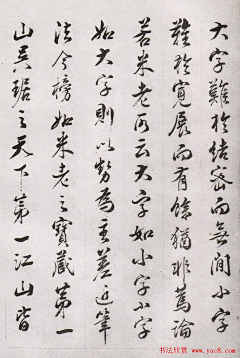 大字難於結密而無間小字
難於寬展而有餘猶非篤論
若米老所云大字如小字小字
如大字則以勢為主差近筆
法今榜如米老之寶藏第一
山吳琚之天下第一江山皆
书法欣赏 .com